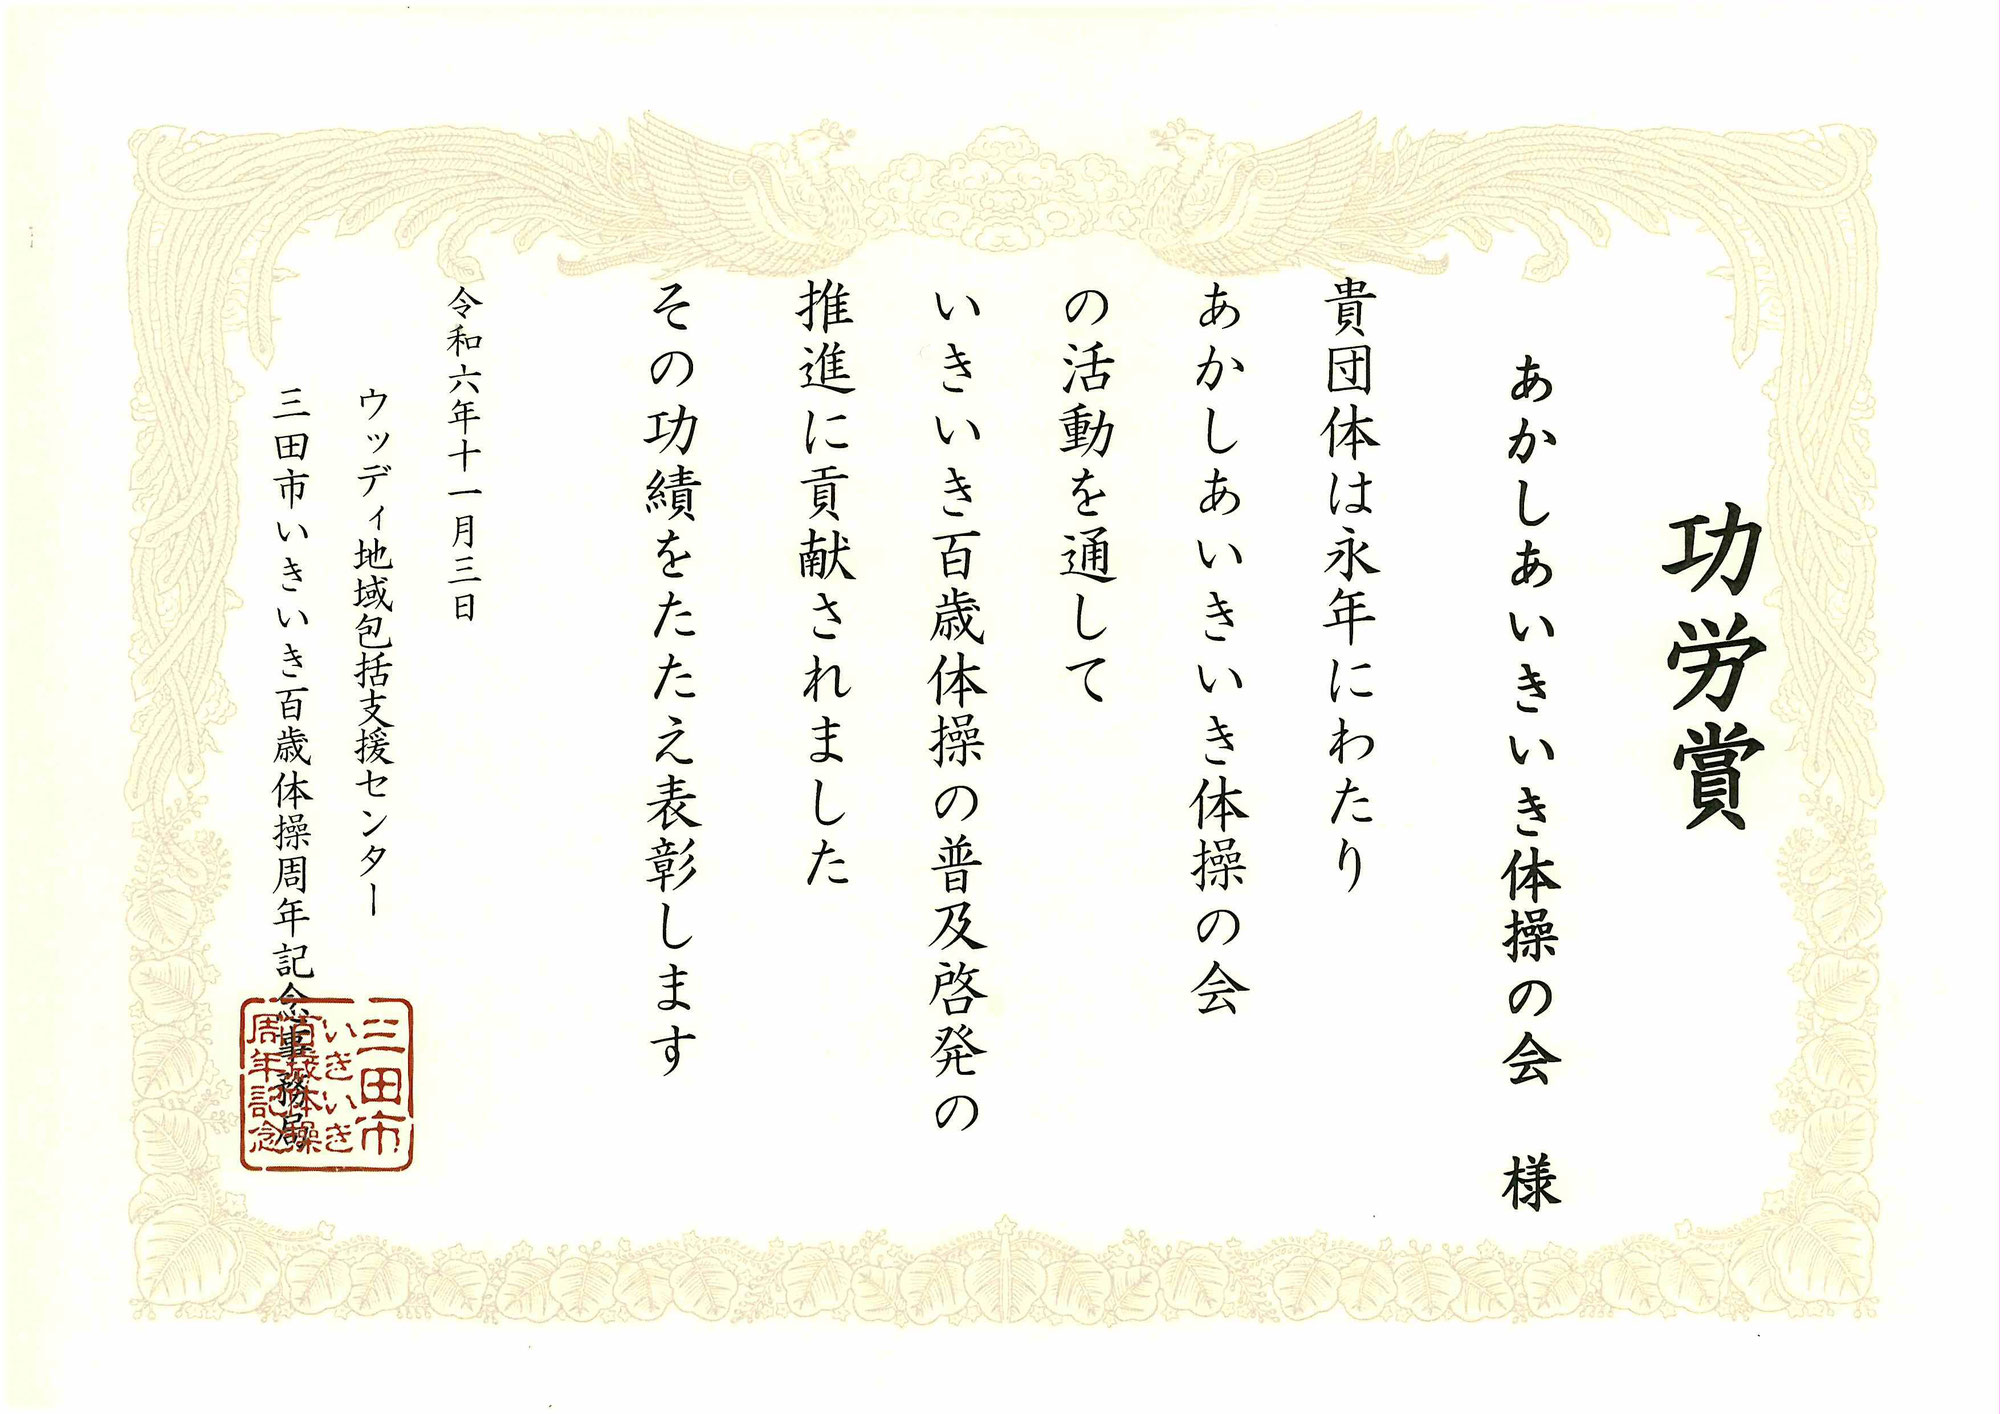 功労賞
あかしあいきいき体操の会　様
貴団体は永年にわたり
あかしあいきいき体操の会
の活動を通して
いきいき百歳体操の普及啓発の
推進に貢献されました
その功績をたたえ表彰します
令和六年十一月三日
ウッディ地域包括支援センター
三田市いきいき百歳体操周年記念事務局
三田市
いきいき
百歳体操
周年記念